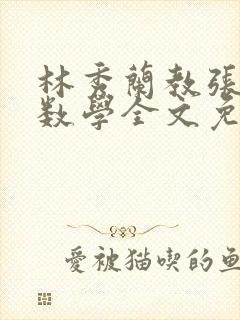 林秀蘭教張
數學全文免
愛被猫喫的魚